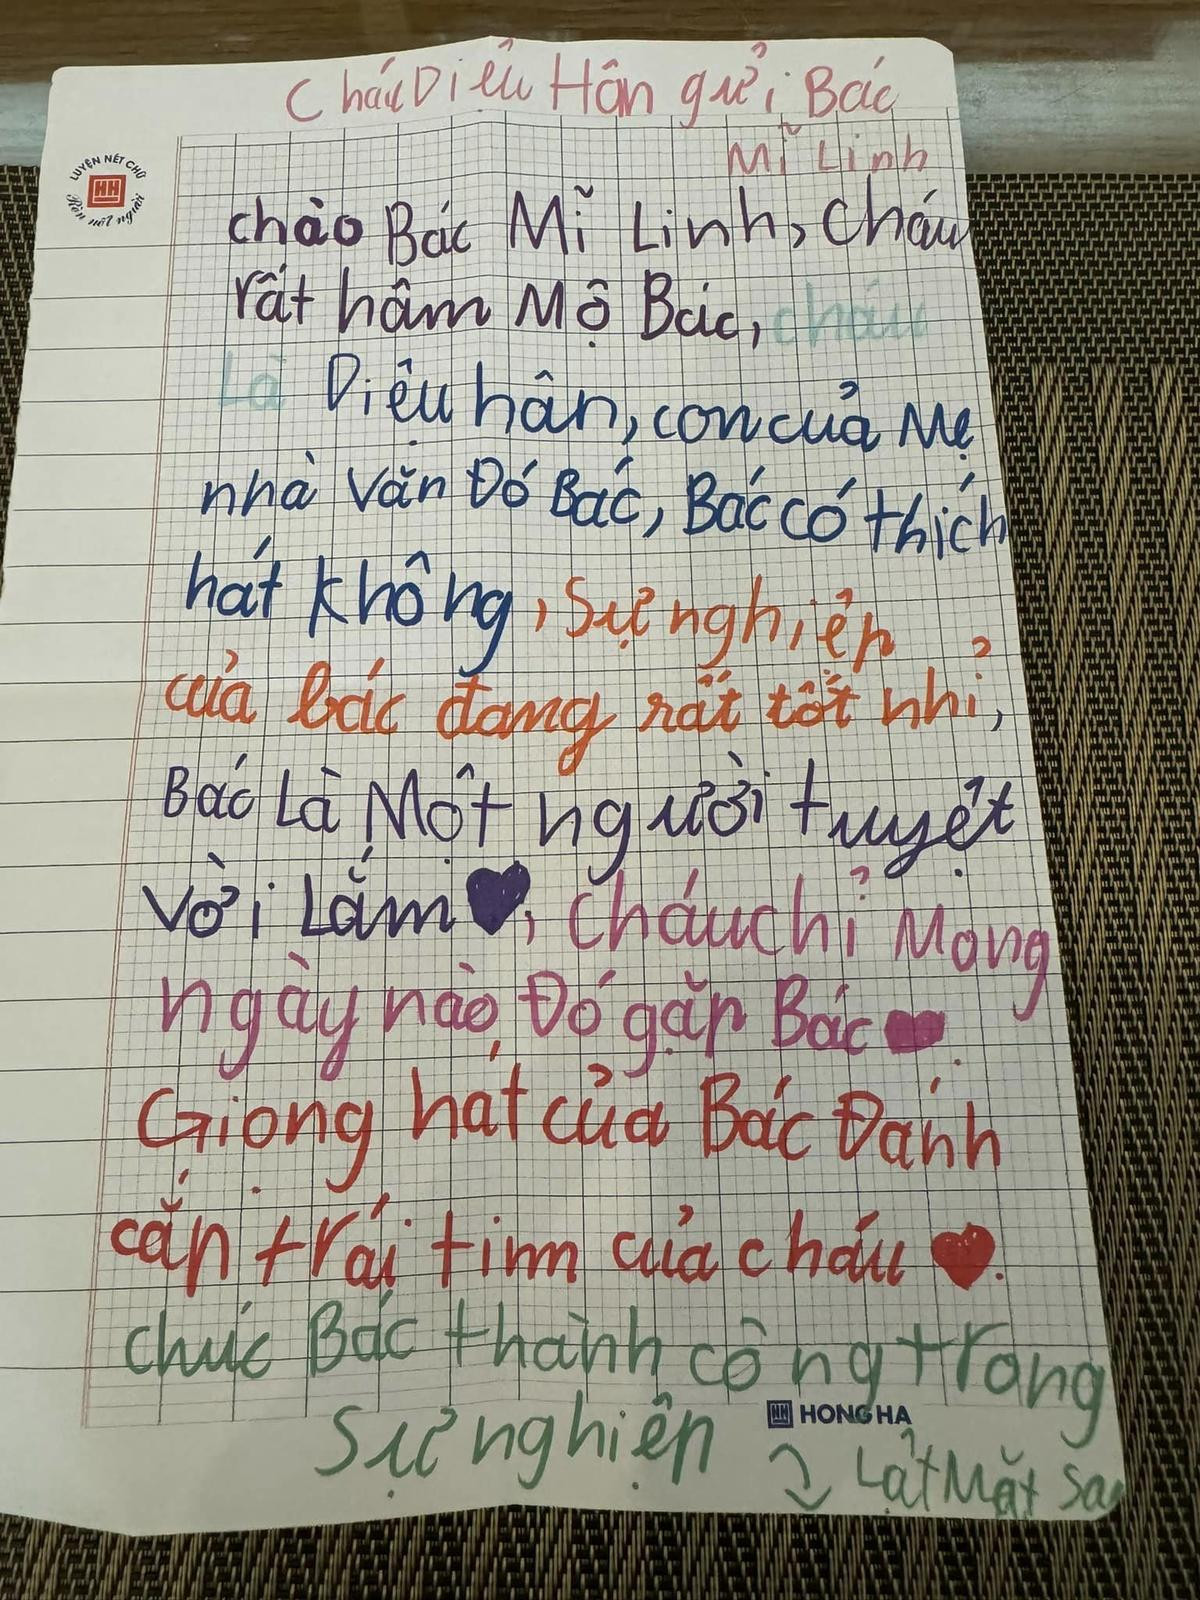 Cháu Diệu Hân gửi Bác
Mĩ Linh
LUYỆN NÉT CHỮ
Rèn nết người
HH
chào Bác Mĩ Linh, Cháu
rất hâm Mộ Bác, cháu
Là Diệu hân, con của Mẹ
nhà Văn Đó Bác, Bác có thích
hát không, Sự nghiệp
của bác đang rất tốt nhỉ,
Bác Là Một người tuyệt
Vời Lắm, Cháu chỉ Mong
ngày nào Đó gặp Bác.
Giọng hát của Bác Đánh
cắp trái tim của cháu.
chúc Bác thành công trong
Sự nghiệp
HH HONG HA
Lật Mặt Sau